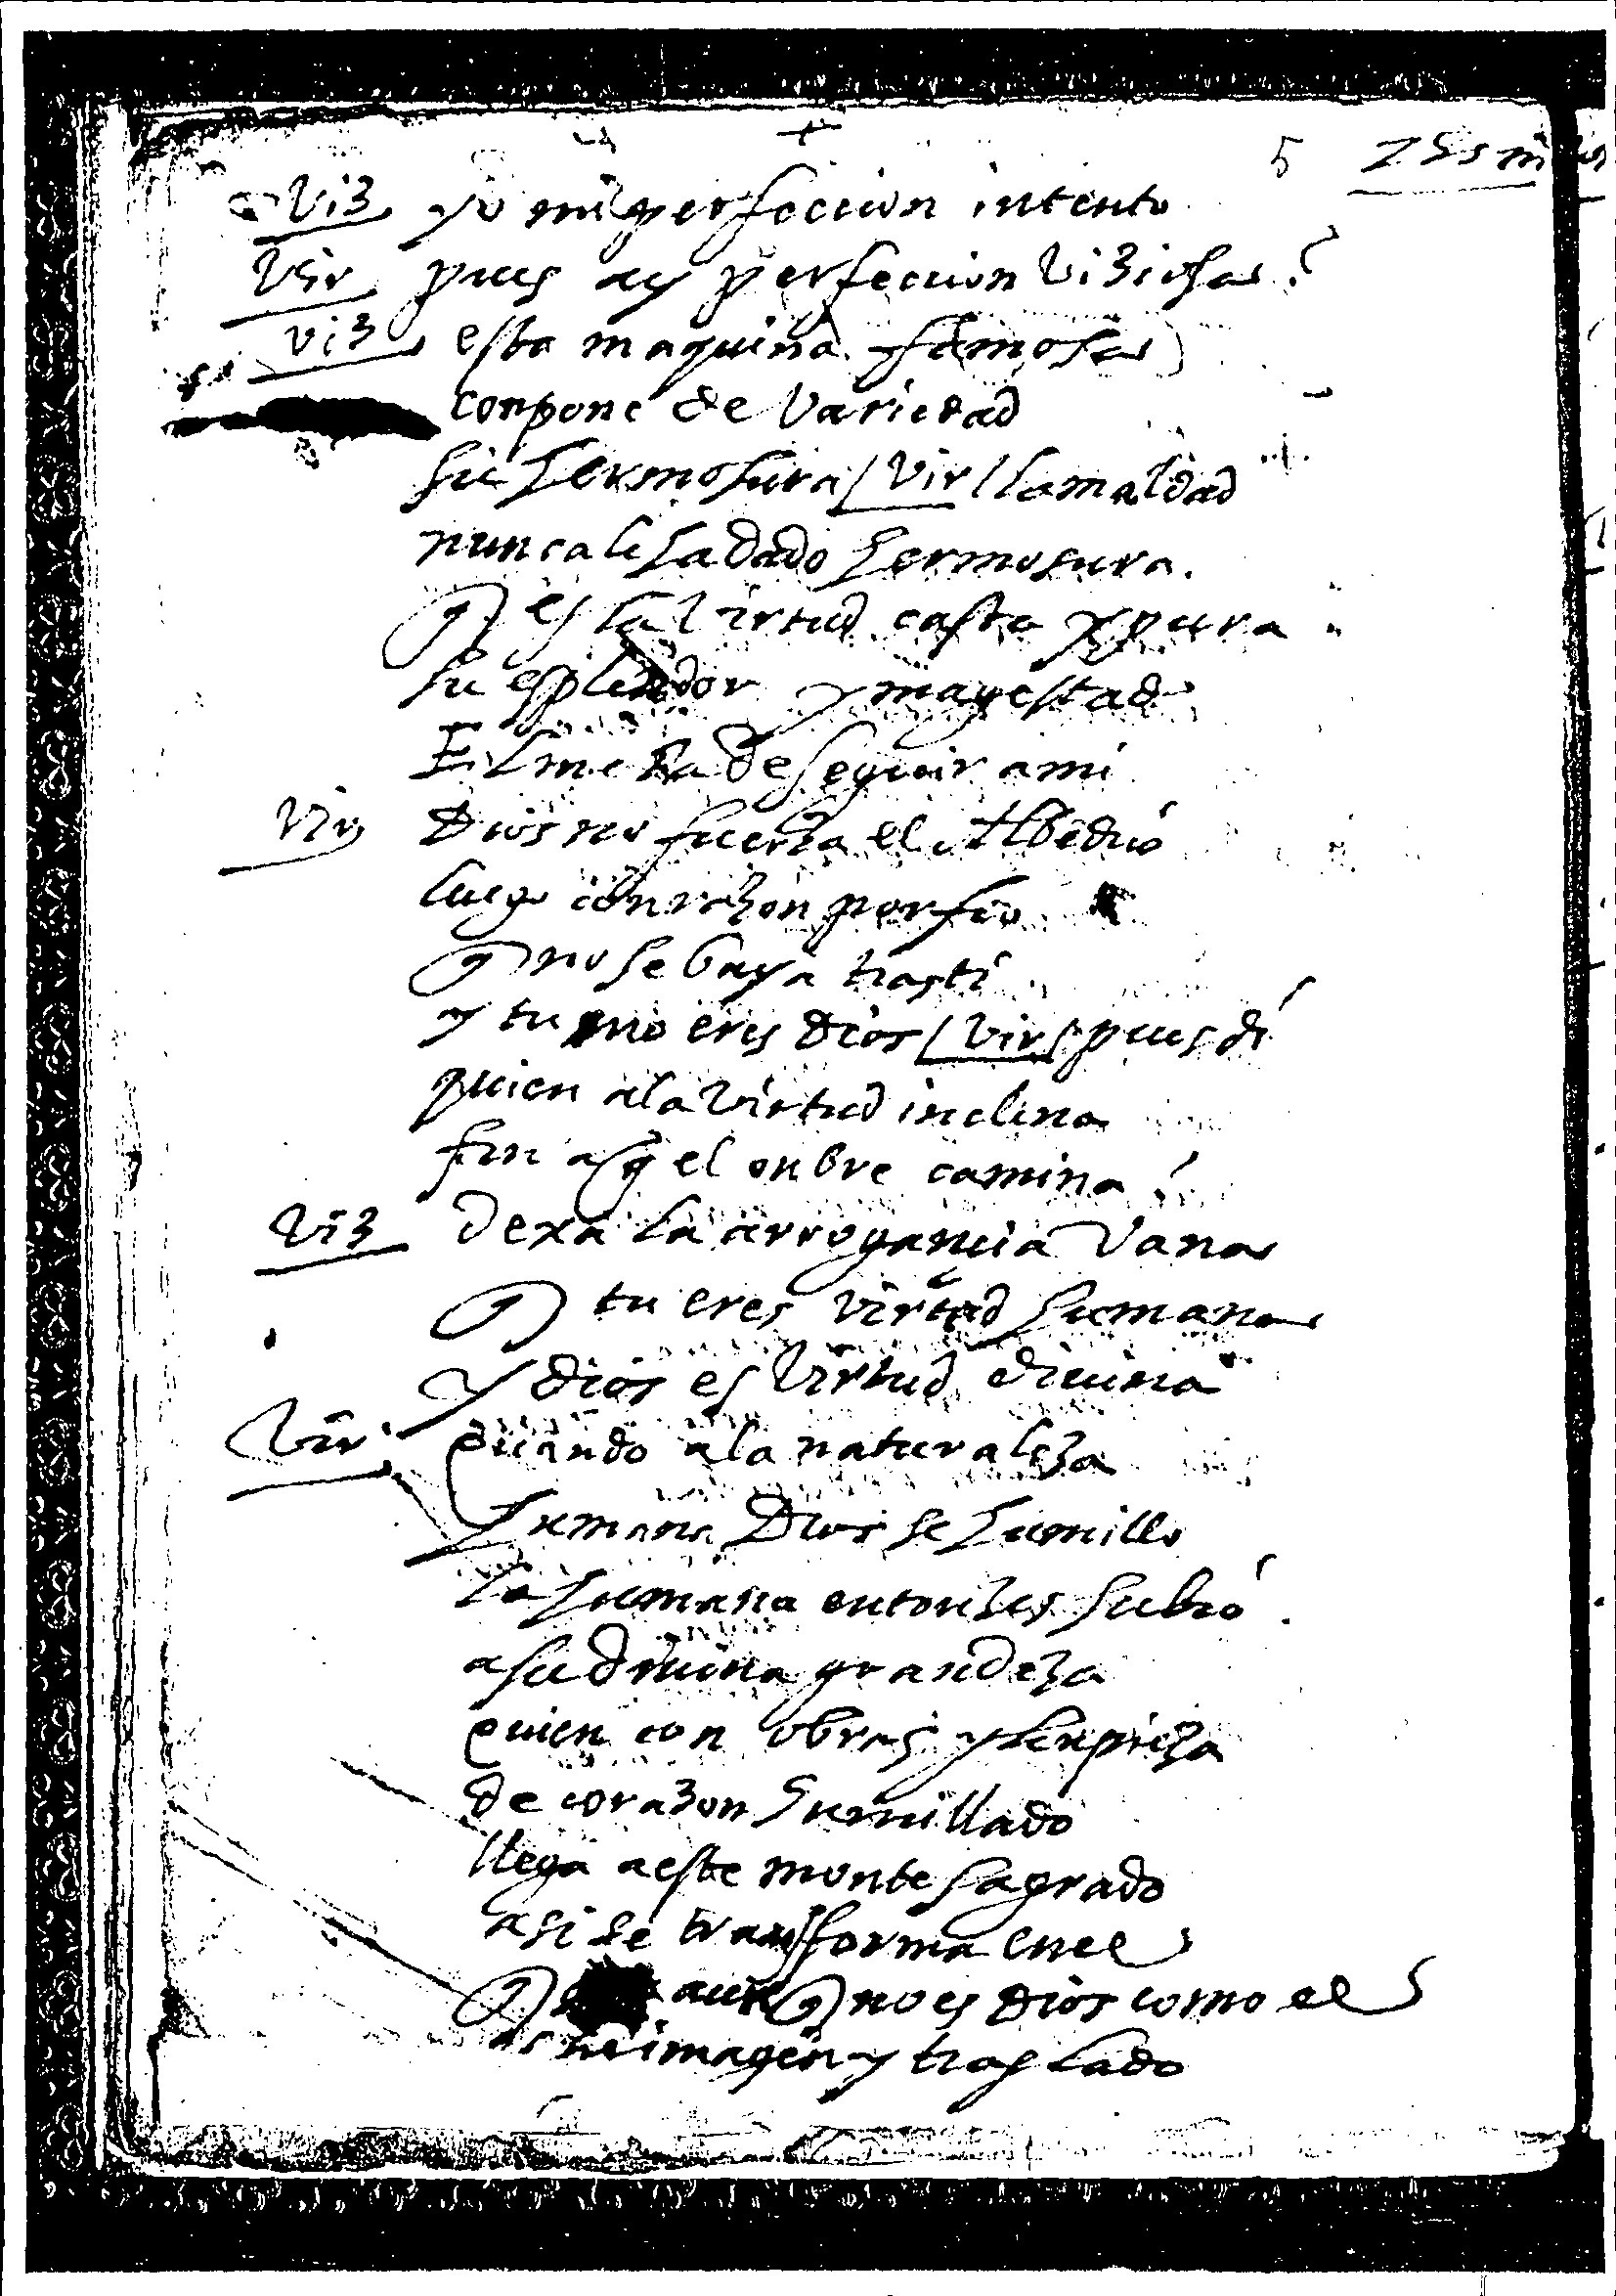 5
viz yo mi perfeccion intento
vir pues ay perfeccion viziosa?
viz esta maquina famosa
conpone de variedad
su hermosura / vir / la maldad
nunca le ha dado hermosura.
q es la virtud casta y pura
su esplendor y magestad
El me ha de seguir a mi
vir Dios no fuerza el Albedrio
luego con razon porfio
q no se baya tras ti
y tu no eres Dios / vir / pues di
quien a la virtud inclina
fin a q el onbre camina?
viz dexa la arrogancia vana
q tu eres virtud humana
y dios es virtud diuina
vir quando a la naturaleza
humana Dios se humillo
la humana entonzes subió
a su diuina grandeza
quien con obras y linpieza
de corazon humillado
llega a este monte sagrado
asi se transforma en el
q aun q no es Dios como el
es su imagen y traslado